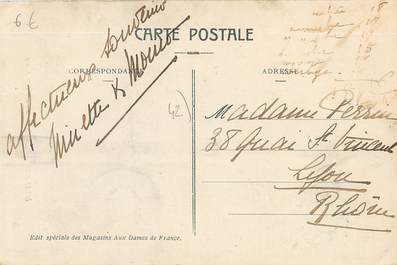 6€
CARTE POSTALE
CORRESPONDANCE
ADRESSE
affectueux souvenir
Minette &
42
Madame Perrin
38 Quai St Vincent
Lyon
Rhône
Edit spéciale des Magasins Aux Dames de France.